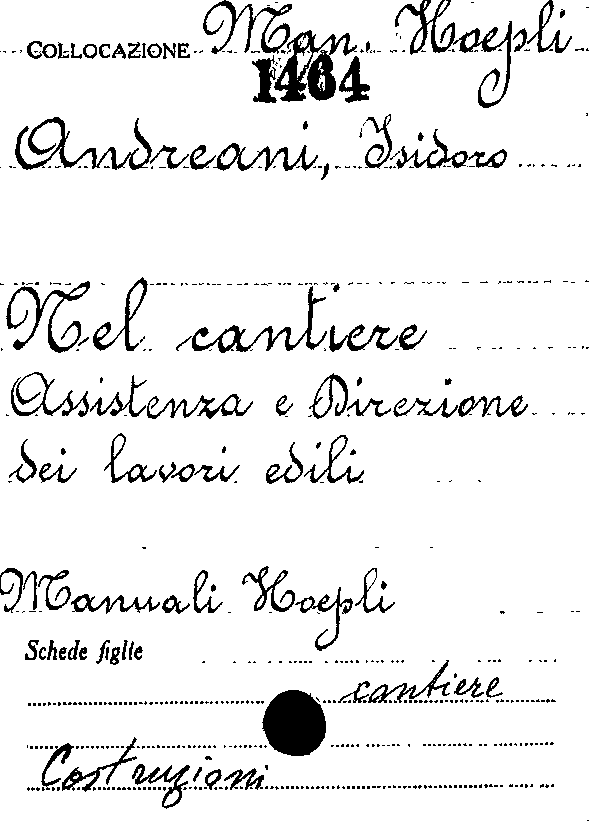 COLLOCAZIONE Man. Hoepli
1464
Andreani, Isidoro
Nel cantiere
Assistenza e Direzione
dei lavori edili
Manuali Hoepli
Schede figlie
cantiere
Costruzioni